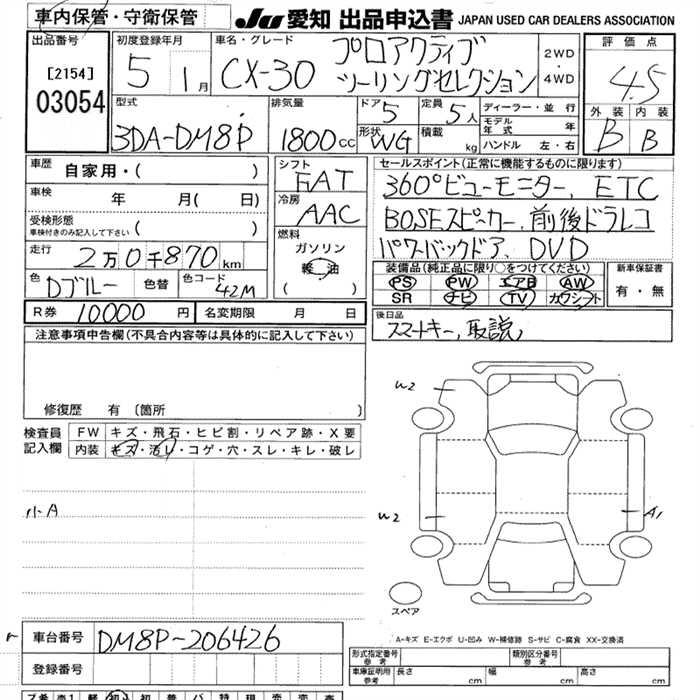 車内保管・守衛保管
JU 愛知 出品申込書 JAPAN USED CAR DEALERS ASSOCIATION
出品番号
[2154]
03054
初度登録年月
5 1月
車名・グレード
CX-30
プロアクティブ
ツーリングセレクション
2WD
・
4WD
評価点
4.5
外装 内装
B B
型式
3DA-DM8P
排気量
1800cc
ドア 5
定員 5人
形状 WG
積載 kg
ディーラー・並行
モデル年式 年
ハンドル 左・右
車歴 自家用・( )
車検 年 月( 日)
受検形態
車検付きのみ記入して下さい ( )
走行 2万0千870km
色 Dブルー 色替 色コード 42M
シフト
FAT
冷房
AAC
燃料
ガソリン
軽油
( )
セールスポイント(正常に機能するものに限ります)
360°ビューモニター、ETC
BOSEスピーカー、前後ドラレコ
パワーバックドア、DVD
装備品(純正品に限り○をつけてください)
PS PW エアB AW
SR ナビ TV カワシート
新車保証書
有・無
R券 10000円 名変期限 月 日
後日品
スマートキー、取説、
注意事項申告欄(不具合内容等は具体的に記入して下さい)
修復歴 有 〔箇所 〕
検査員記入欄
FW キズ・飛石・ヒビ割・リペア跡・X要
内装 キズ・汚レ・コゲ・穴・スレ・キレ・破レ
小A
W2
W2
A1
スペア
A-キズ E-エクボ U-凹み W-補修跡 S-サビ C-腐食 XX-交換済
車台番号 DM8P-206426
登録番号
形式指定番号 参考
類別区分番号 参考
車庫証明用 参考 長さ cm 幅 cm 高さ cm